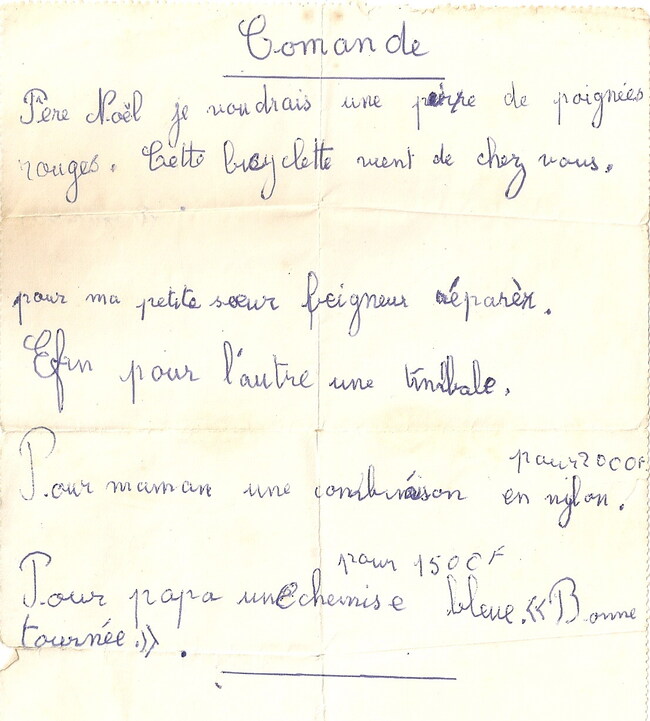 Comande
Père Noël je voudrais une paire de poignées
rouges. Cette bicyclette vient de chez vous.
pour ma petite sœur beigneur réparèr.
Efin pour l'autre une timbale.
pour 2000F
Pour maman une combinaison en nylon.
pour 1500F
Pour papa une chemise bleue. «Bonne
tournée.» .